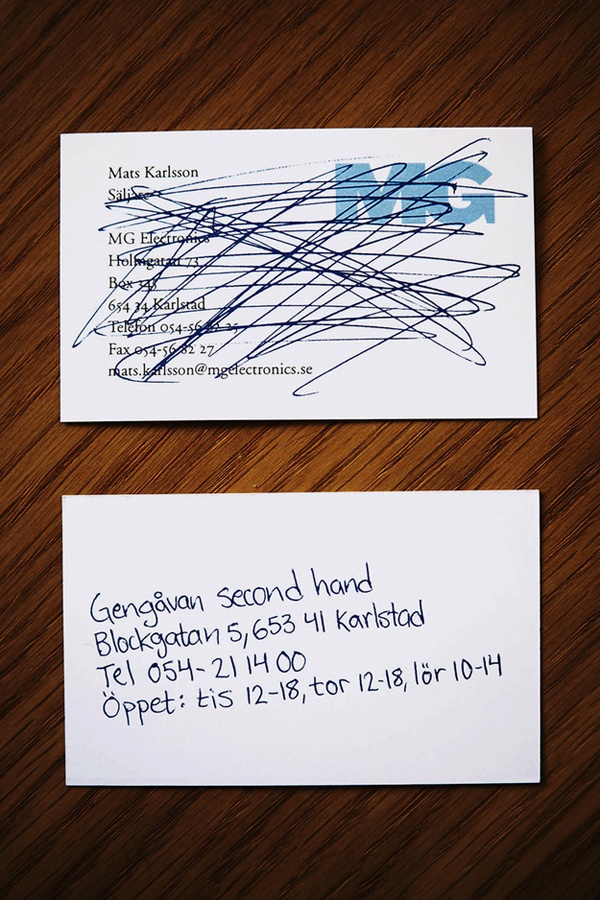 Mats Karlsson
MG
Säljare
MG Electronics
Holmgatan 73
Box 345
654 34 Karlstad
Telefon 054-56 32 25
Fax 054-56 32 27
mats.karlsson@mgelectronics.se
Gengåvan second hand
Blockgatan 5, 653 41 Karlstad
Tel 054-21 14 00
Öppet: tis 12-18, tor 12-18, lör 10-14